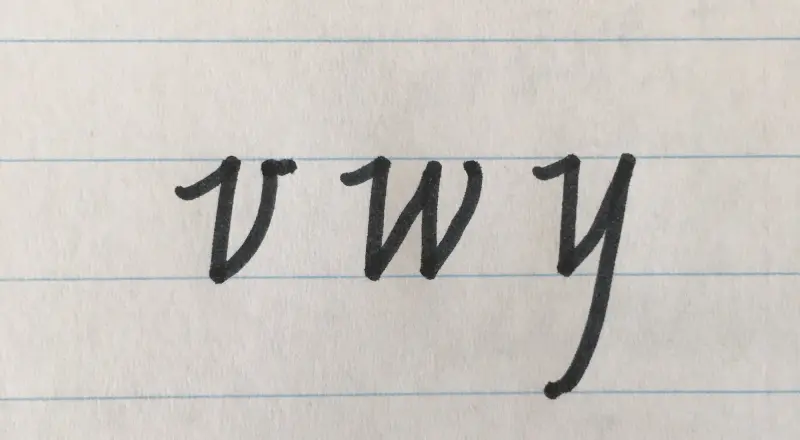 v w y